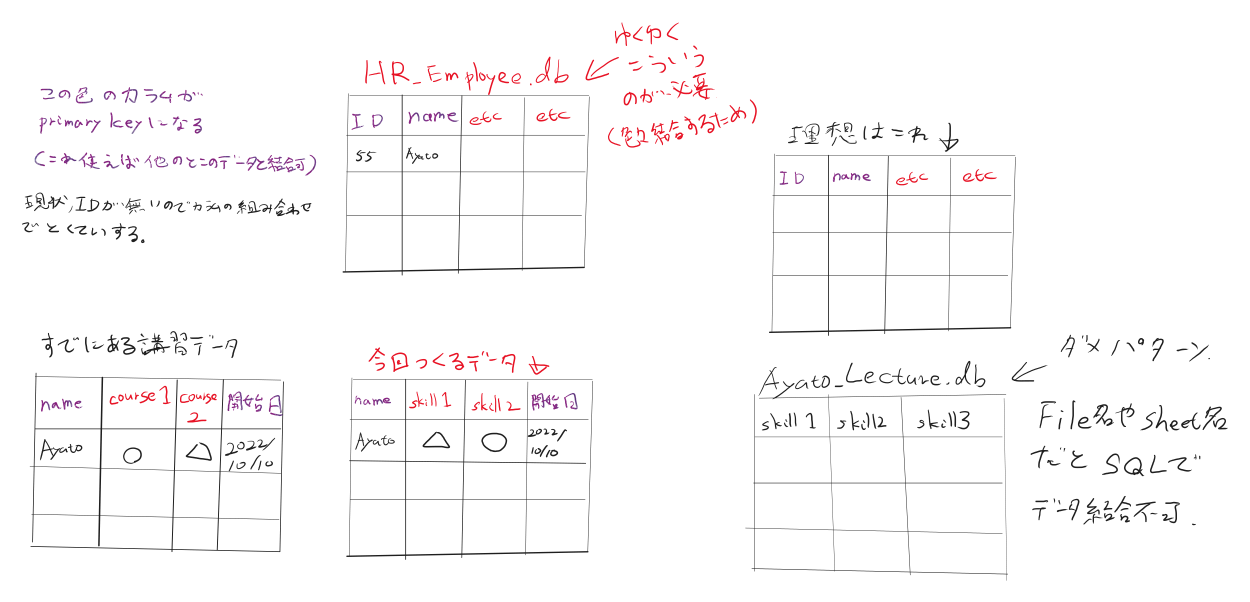 この色のカラムが
primary keyになる
(これ使えば他のとこのデータと結合可)
現状、IDが無いのでカラムの組み合わせ
でとくていする。
HR_Employee.db
ゆくゆく
こういう
のが必要
(色々結合するため)
ID name etc etc
55 Ayato
理想はこれ↓
ID name etc etc
すでにある講習データ
name course1 course2 開始日
Ayato ○ △ 2022/10/10
今回つくるデータ↓
name skill1 skill2 開始日
Ayato △ ○ 2022/10/10
Ayato_Lecture.db
skill1 skill2 skill3
ダメパターン.
File名やsheet名
だとSQLで
データ結合不可.